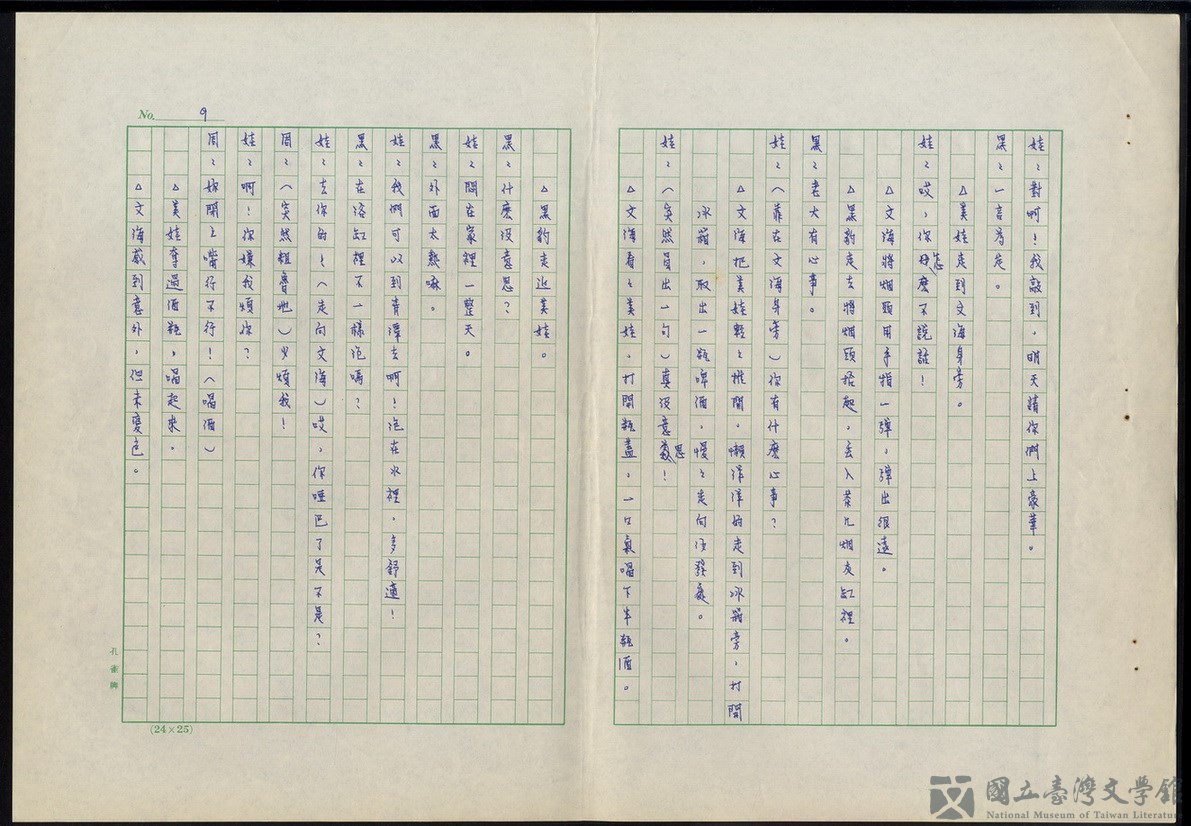 娃:對啊!我敲到,明天請你們上豪華。
黑:一言為定。
△美娃走到文海身旁。
娃:哎,你怎麼不說話!
△文海將烟頭用手指一彈,彈出很遠。
△黑豹走去將烟頭拾起,丟入茶几烟灰缸裡。
黑:老大有心事。
娃:(靠在文海身旁)你有什麼心事?
△文海把美娃輕輕推開,懶洋洋的走到冰箱旁,打開
冰箱,取出一瓶啤酒,慢慢走向沙發處。
娃:(突然冒出一句)真沒意思!
△文海看看美娃,打開瓶蓋,一口氣喝下半瓶酒。
No. 9
△黑豹走近美娃。
黑:什麼沒意思?
娃:悶在家裡一整天。
黑:外面太熱嘛。
娃:我們可以到青潭去啊!泡在水裡,多舒適!
黑:在浴缸裡不一樣泡嗎?
娃:去你的!(走向文海)哎,你啞巴了是不是?
周:(突然粗魯地)少煩我!
娃:啊!你嫌我煩你?
周:妳閉上嘴行不行!(喝酒)
△美娃奪過酒瓶,喝起來。
△文海感到意外,但未變色。
孔雀牌
(24×25)
國立臺灣文學館
National Museum of Taiwan Literature